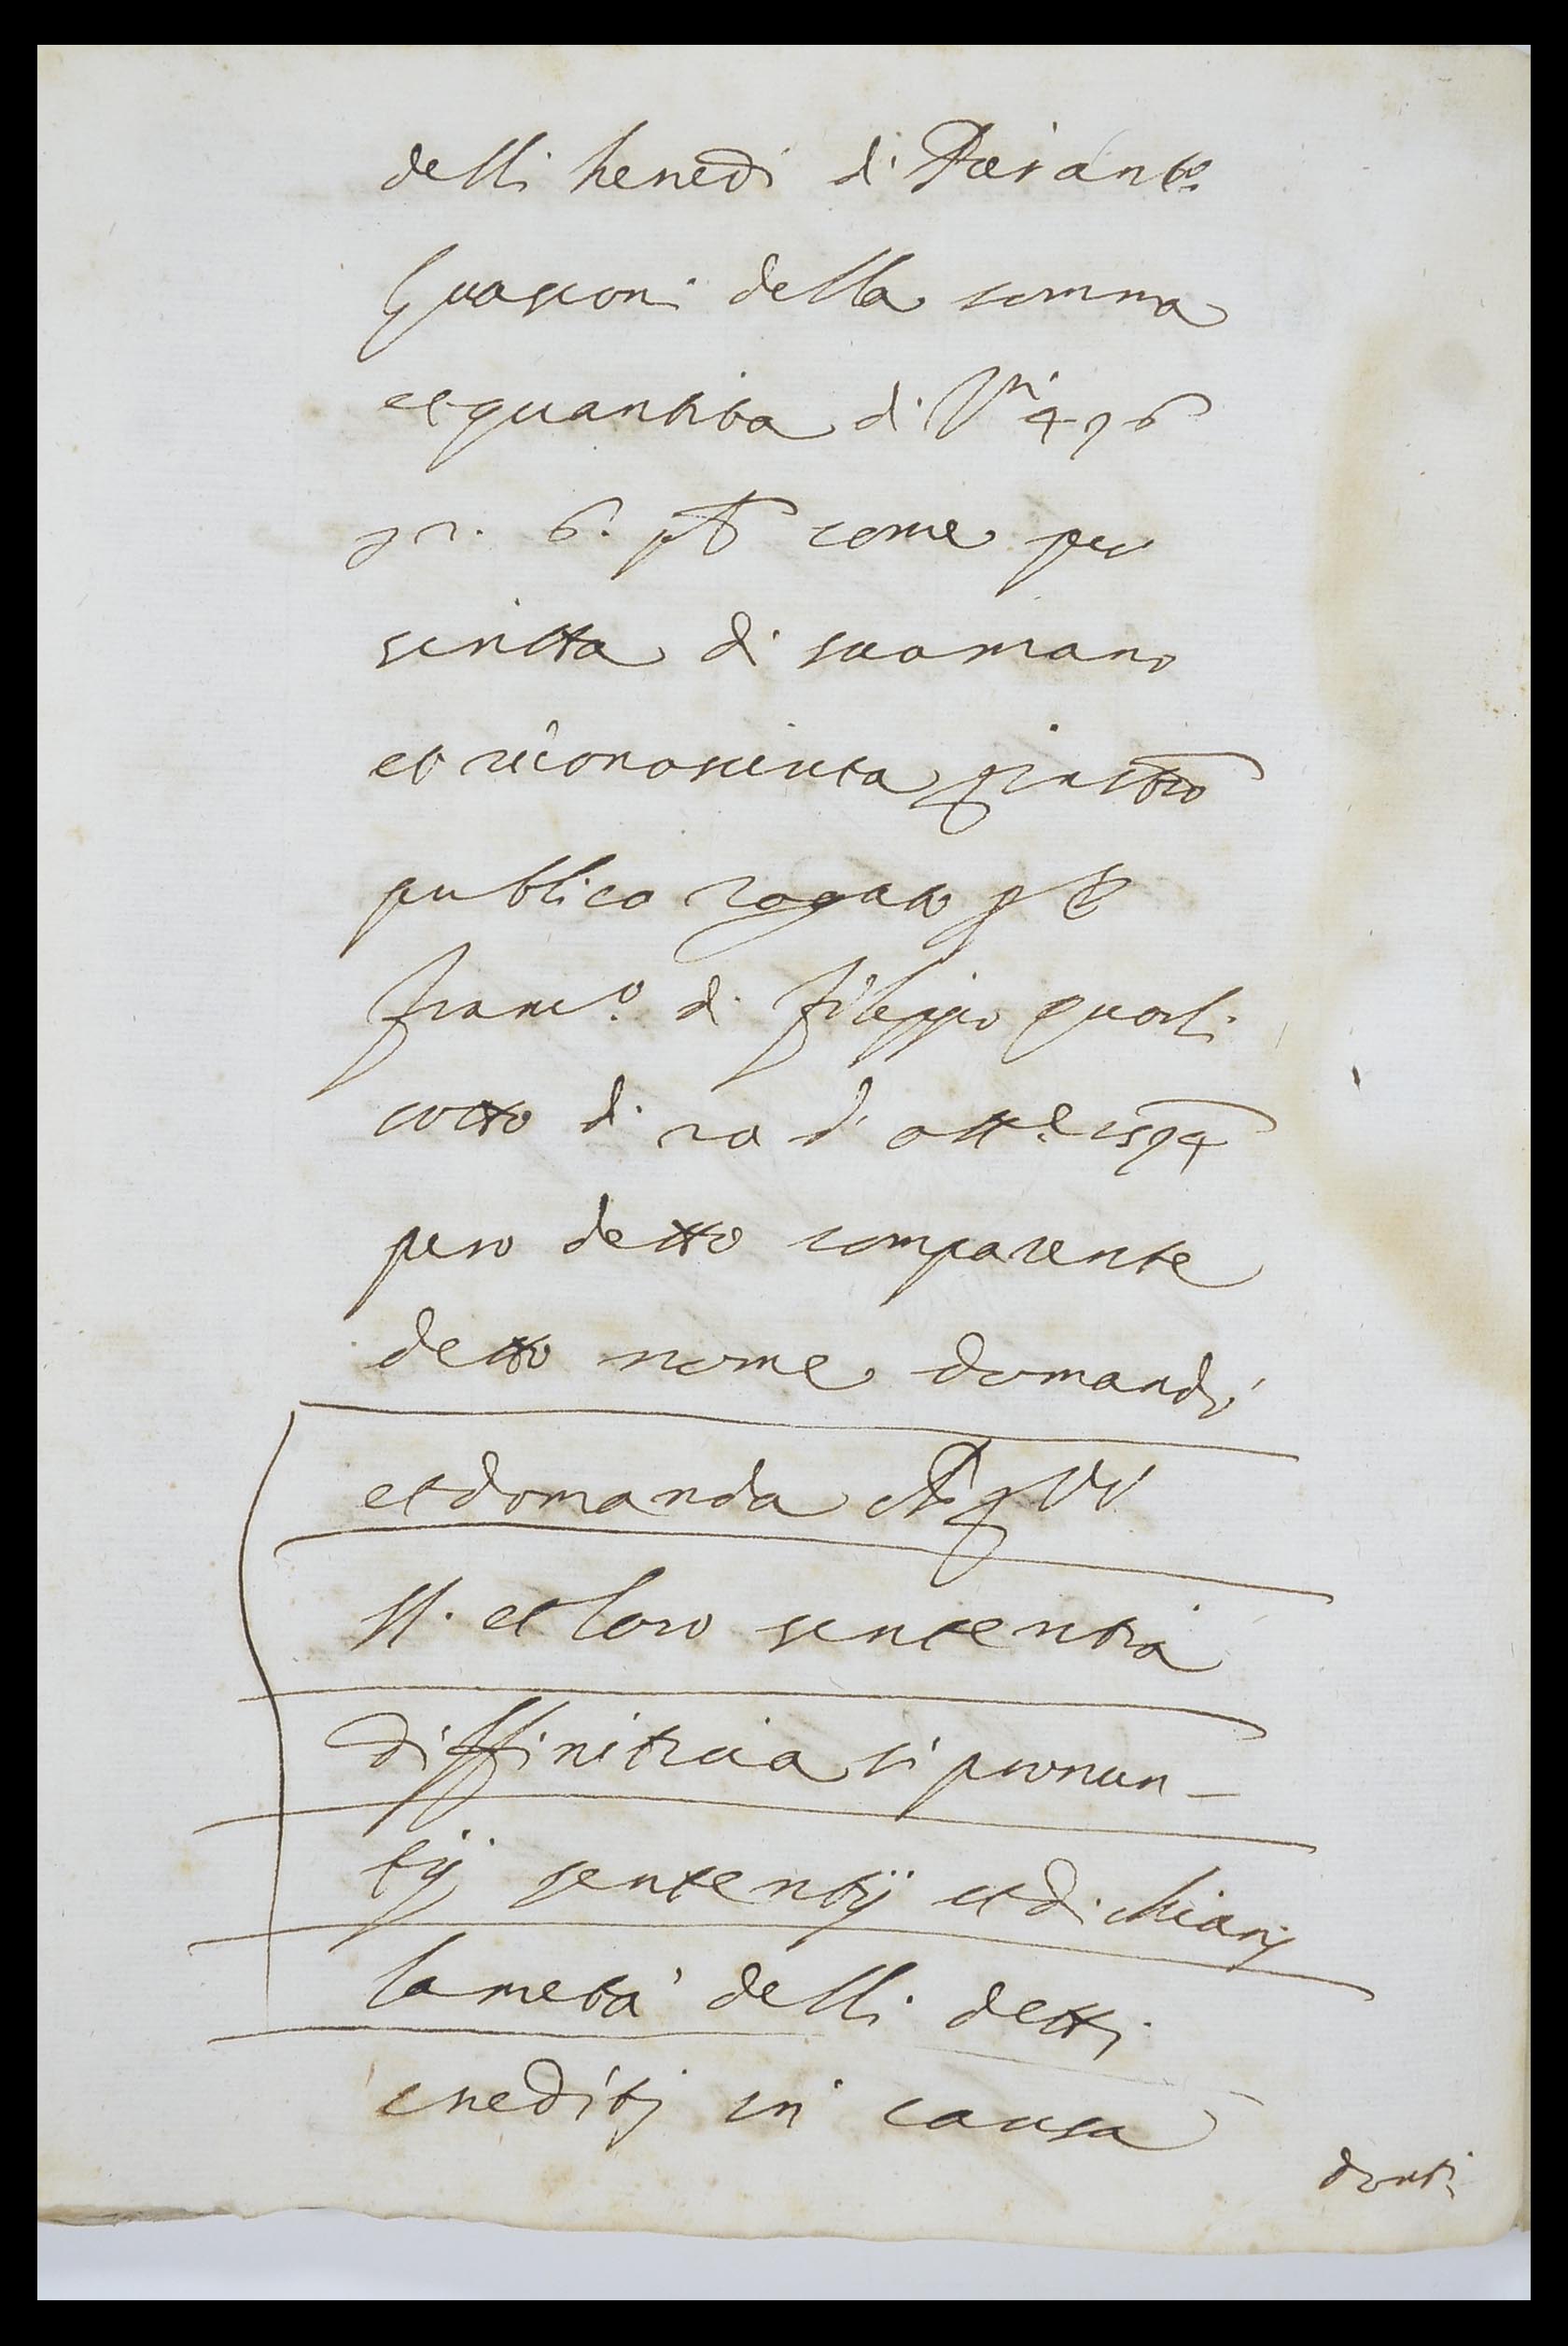 delli heredi di Pierant.º
Guasconi della somma
et quantita di 476
6. come per
scritta di sua mano
et riconosciuta
publico rogato
Franc.º di Filippo
cotto di 20 d'ott.e 1594
pero detto comparente
detto nome domandò
et domanda VV
SS. et loro sententia
diffinitiva si pronun-
tij sententij et dichiarij
la metà delli detti
crediti in causa